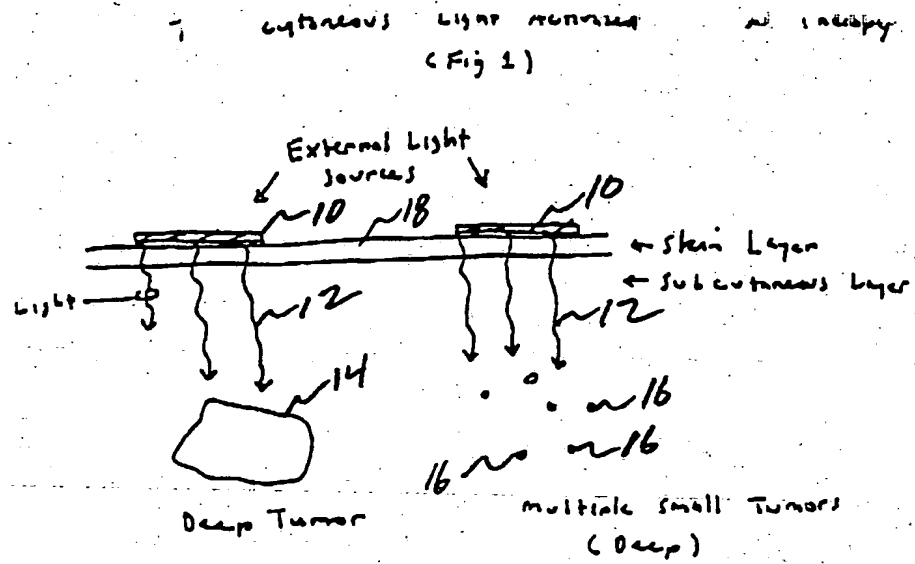 cutaneous Light
(Fig 1)
External Light
sources
10 18 10
← Skin Layer
← Subcutaneous Layer
Light 12 12
14
16
16
16
Deep Tumor
multiple small Tumors
(Deep)